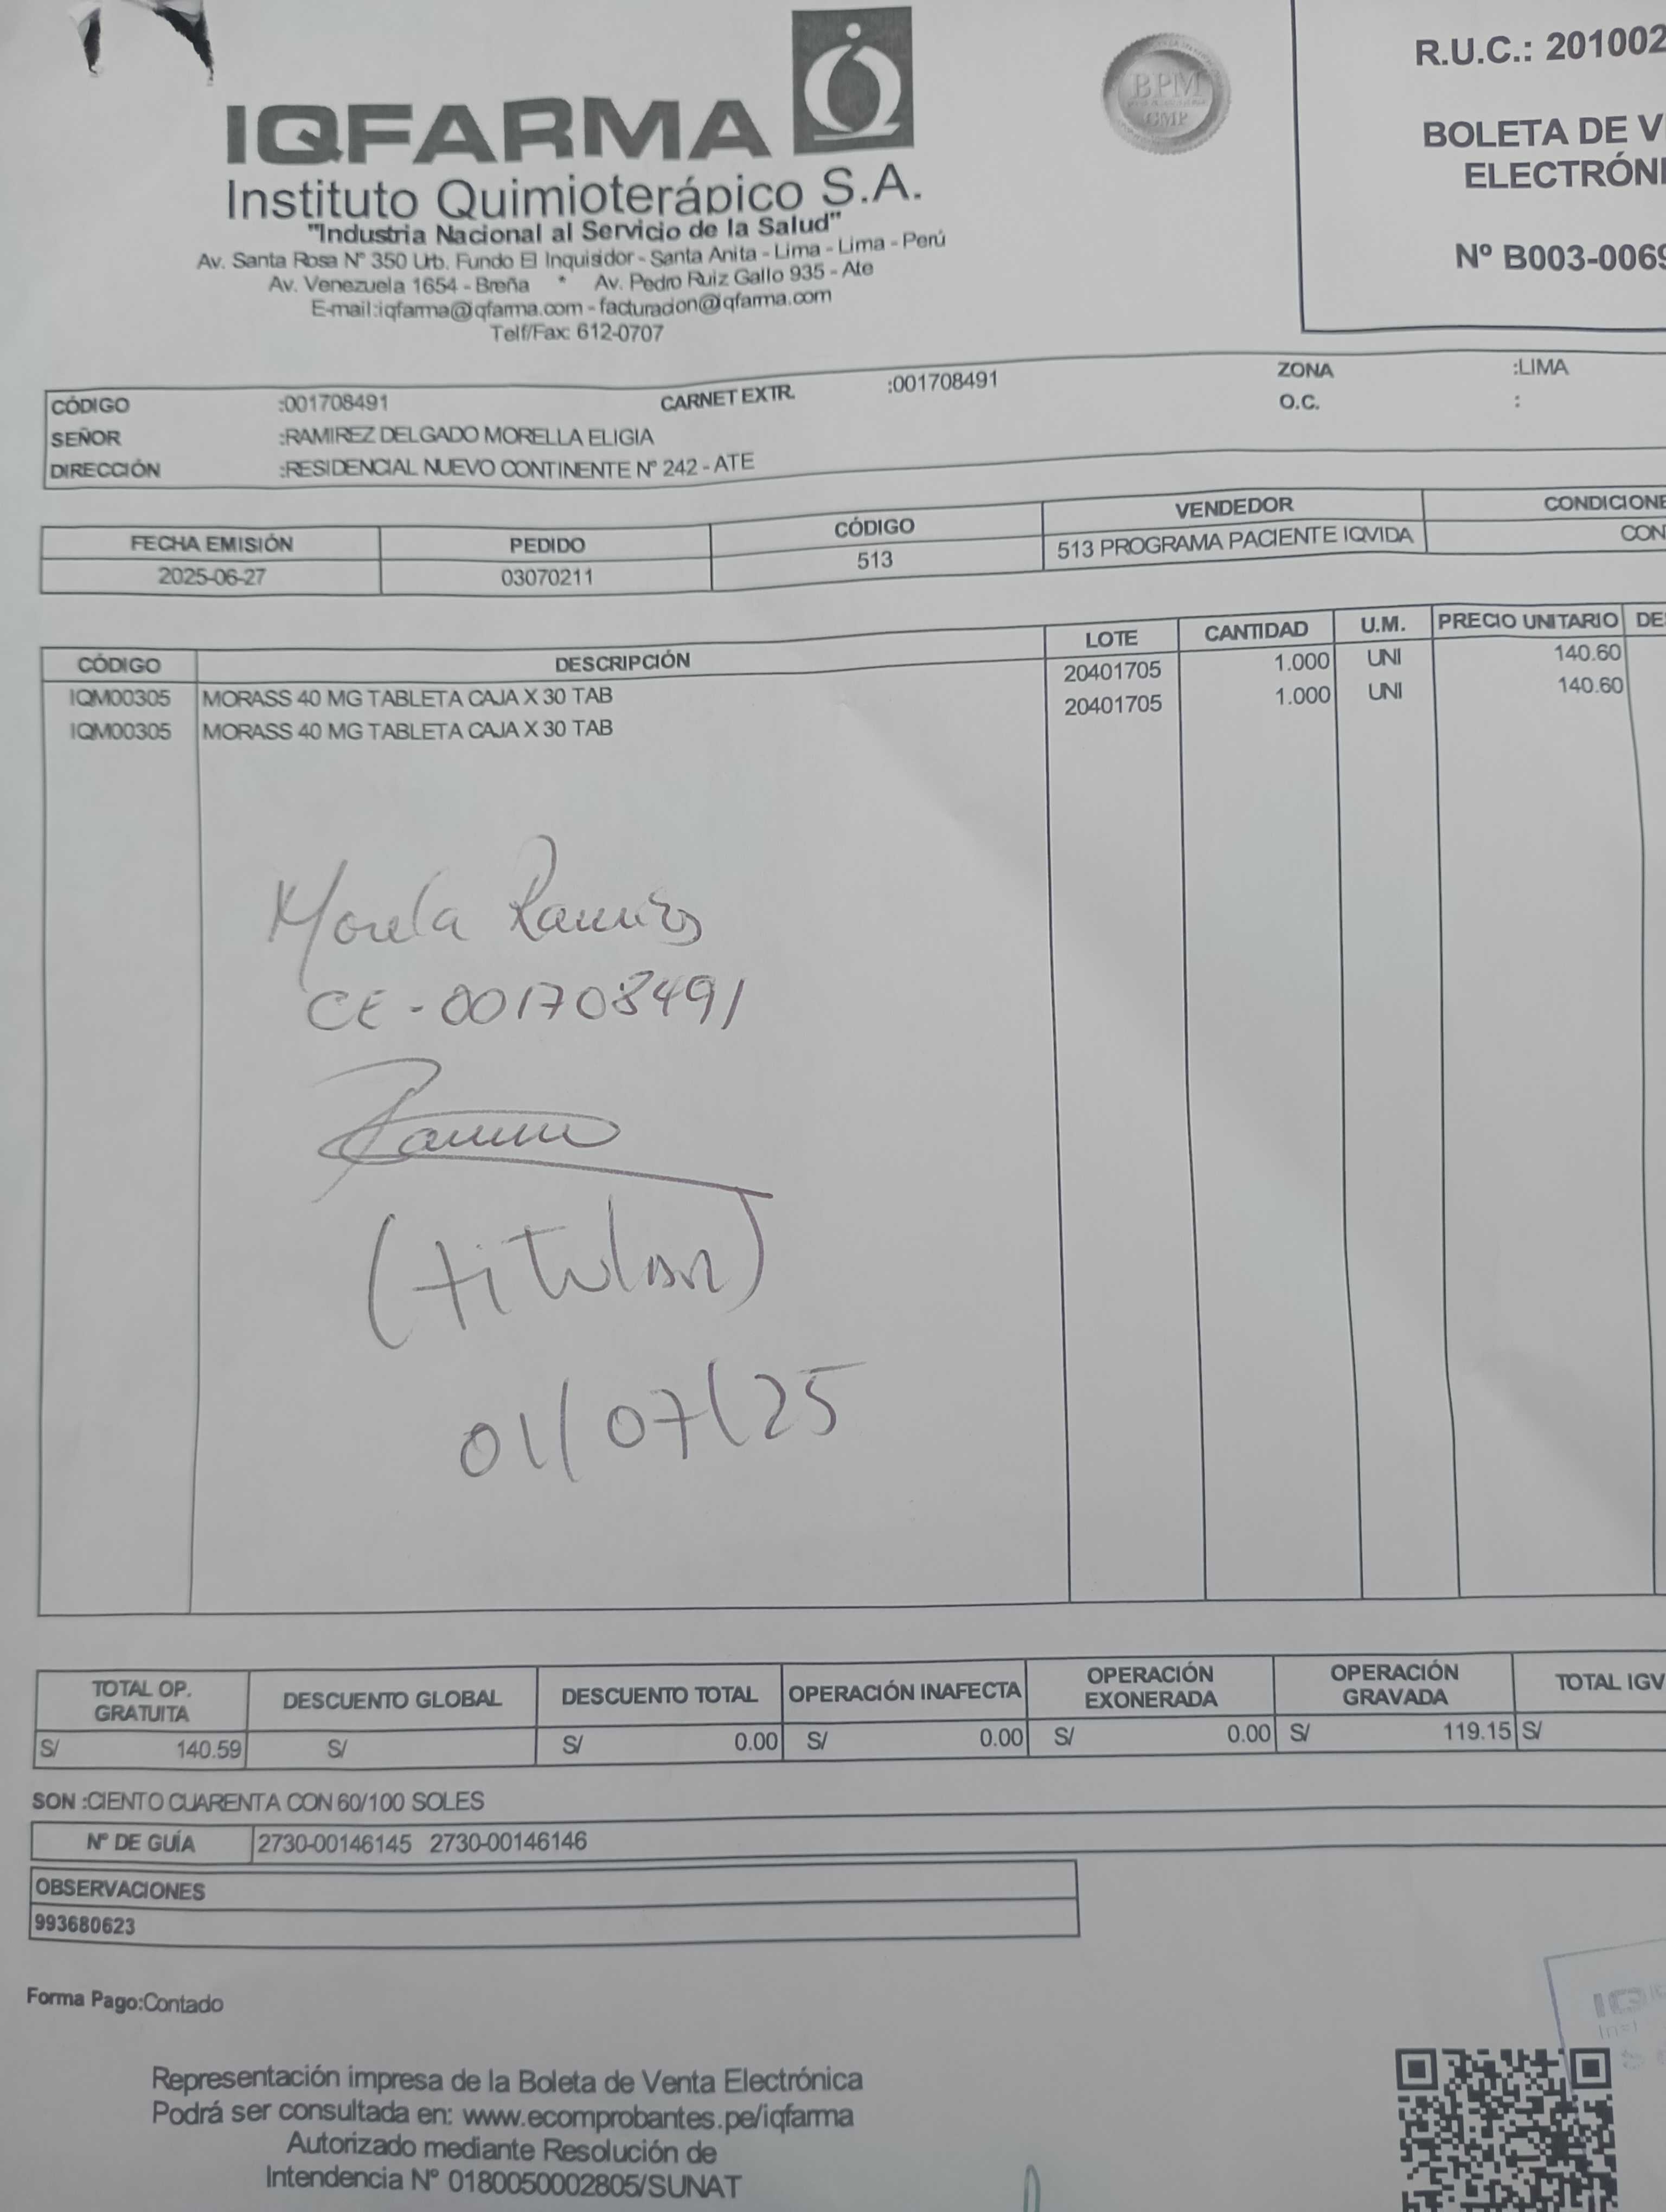 IQFARMA
Instituto Quimioterápico S.A.
"Industria Nacional al Servicio de la Salud"
Av. Santa Rosa Nº 350 Urb. Fundo El Inquisidor - Santa Anita - Lima - Lima - Perú
Av. Venezuela 1654 - Breña * Av. Pedro Ruiz Gallo 935 - Ate
E-mail:iqfarma@iqfarma.com - facturacion@iqfarma.com
Telf/Fax: 612-0707
BPM
GMP
R.U.C.: 201002
BOLETA DE V
ELECTRÓNI
Nº B003-0069
CÓDIGO :001708491 CARNET EXTR. :001708491 ZONA :LIMA
SEÑOR :RAMIREZ DELGADO MORELLA ELIGIA O.C. :
DIRECCIÓN :RESIDENCIAL NUEVO CONTINENTE Nº 242 - ATE
FECHA EMISIÓN PEDIDO CÓDIGO VENDEDOR CONDICIONE
2025-06-27 03070211 513 513 PROGRAMA PACIENTE IQVIDA CON
CÓDIGO DESCRIPCIÓN LOTE CANTIDAD U.M. PRECIO UNITARIO DE
IQM00305 MORASS 40 MG TABLETA CAJA X 30 TAB 20401705 1.000 UNI 140.60
IQM00305 MORASS 40 MG TABLETA CAJA X 30 TAB 20401705 1.000 UNI 140.60
Morela Ramirez
CE - 001708491
(titular)
01/07/25
TOTAL OP. GRATUITA DESCUENTO GLOBAL DESCUENTO TOTAL OPERACIÓN INAFECTA OPERACIÓN EXONERADA OPERACIÓN GRAVADA TOTAL IGV
S/ 140.59 S/ S/ 0.00 S/ 0.00 S/ 0.00 S/ 119.15 S/
SON :CIENTO CUARENTA CON 60/100 SOLES
Nº DE GUÍA 2730-00146145 2730-00146146
OBSERVACIONES
993680623
Forma Pago:Contado
Representación impresa de la Boleta de Venta Electrónica
Podrá ser consultada en: www.ecomprobantes.pe/iqfarma
Autorizado mediante Resolución de
Intendencia Nº 0180050002805/SUNAT